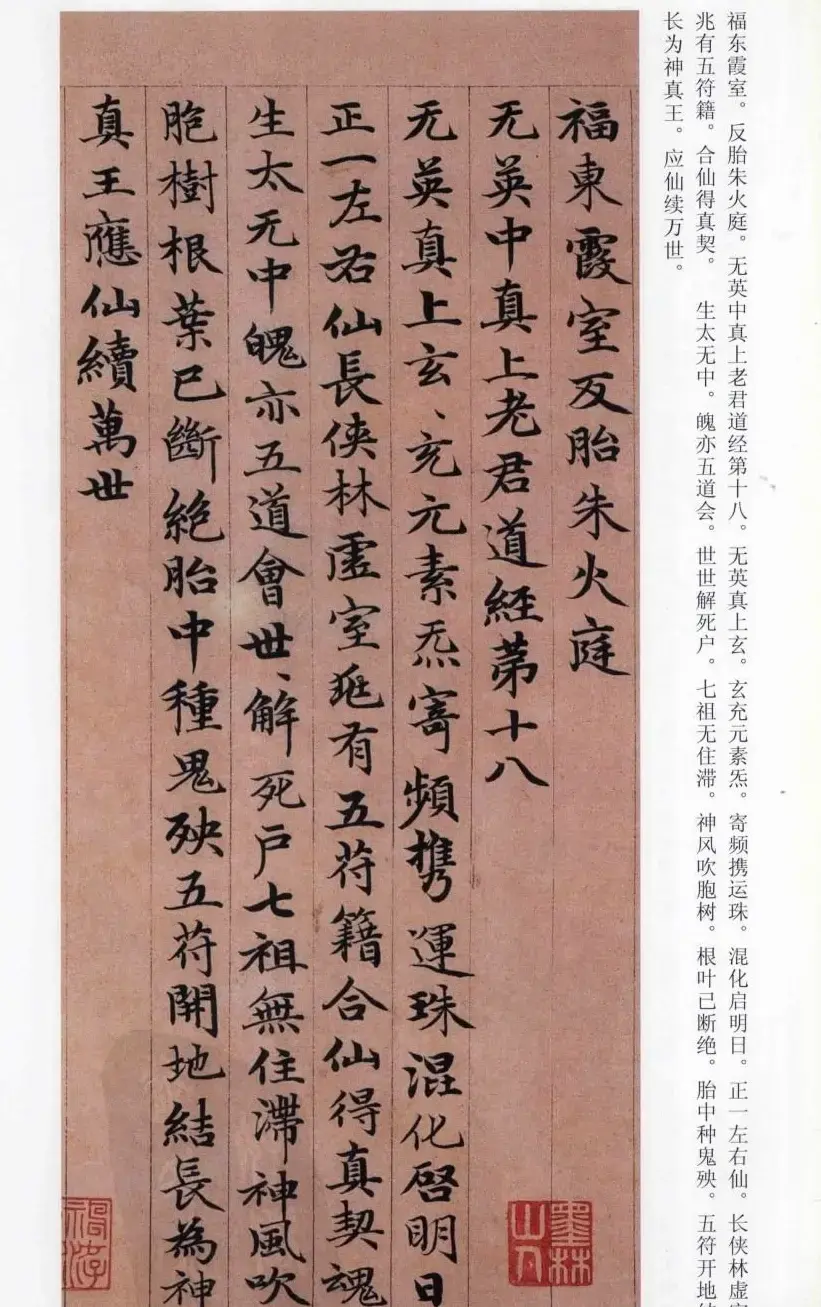 福东霞室。反胎朱火庭。无英中真上老君道经第十八。无英真上玄。玄充元素炁。寄频携运珠。混化启明日。正一左右仙。长侠林虚
兆有五符籍。合仙得真契。 生太无中。魄亦五道会。世世解死户。七祖无住滞。神风吹胞树。根叶已断绝。胎中种鬼殃。五符开地
长为神真王。应仙续万世。
福東霞室反胎朱火庭
无英中真上老君道經第十八
无英真上玄、充元素炁寄頻携運珠混化啓明日
正一左右仙長俠林虛室兆有五符籍合仙得真契魂
生太无中魄亦五道會世、解死戶七祖無住滯神風吹
胞樹根葉已斷絶胎中種鬼殃五符開地結長為神
真王應仙續萬世
墨林山人